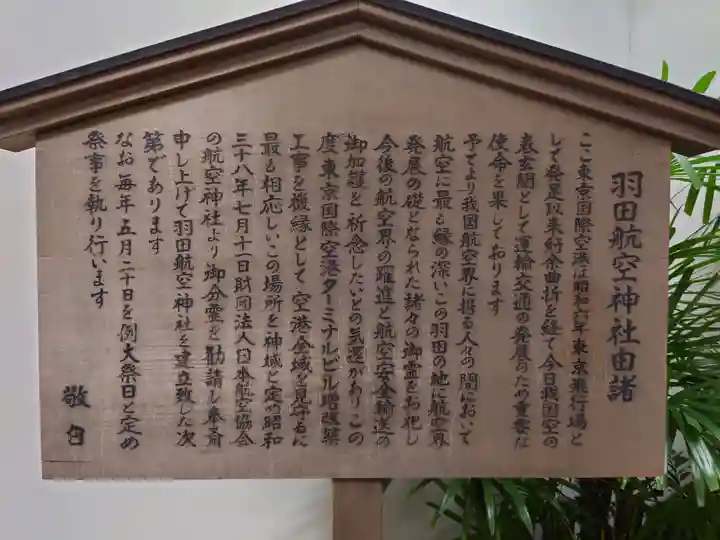 羽田航空神社由諸
ここ東京国際空港は昭和六年東京飛行場と
して発足以来紆余曲折を経て今日我国空の
表玄関として運輸交通の発展のため重要な
使命を果しております
予てより我国航空界に携る人々の間において
航空に最も縁の深いこの羽田の地に航空界
発展の礎となられた諸々の御霊をお祀し
今後の航空界の躍進と航空安全輸送の
御加護を祈念したいとの気運があり この
度 東京国際空港ターミナルビル増改築
工事を機縁として 空港全域を見守るに
最も相応しいこの場所を神域と定め昭和
三十八年七月十一日財団法人日本航空協会
の航空神社より御分霊を勧請し奉斎
申し上げて羽田航空神社を建立致した次
第であります
なお毎年五月二十日を例大祭日と定め
祭事を執り行います
敬白